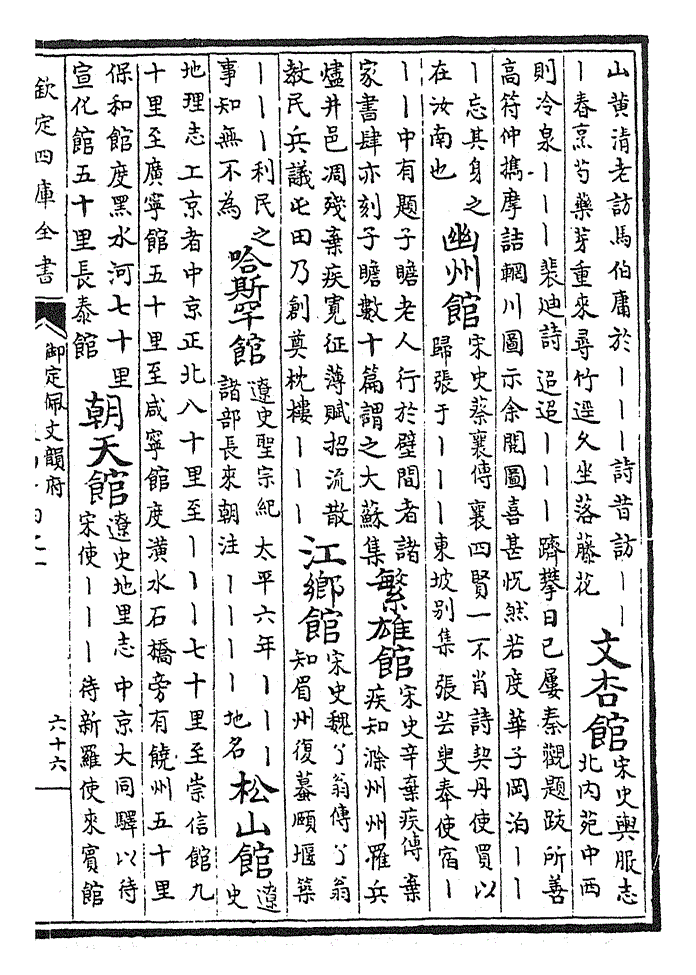 山黄清老訪馬伯庸於丨丨丨詩昔訪丨丨
丨春烹芍藥芽重來尋竹逕久坐落藤花
文杏館
宋史輿服志
北内苑中西
則冷泉丨丨丨裴迪詩 迢迢丨丨丨躋攀日已屢秦觀題跋所善
高符仲攜摩詰輞川圖示余閱圖喜甚怳然若度華子岡泊丨丨
丨忘其身之
在汝南也
幽州館
宋史蔡襄傳襄四賢一不肖詩契丹使買以
歸張于丨丨丨東坡别集 張芸叟奉使宿丨
丨丨中有題子瞻老人行於壁間者諸
家書肆亦刻子瞻數十篇謂之大蘇集
繁雄館
宋史辛棄疾傳棄
疾知滁州州罹兵
燼井邑凋殘棄疾寛征薄賦招流散
教民兵議屯田乃創奠枕樓丨丨丨
江鄉館
宋史魏了翁傳了翁
知眉州復蟇頤堰築
丨丨丨利民之
事知無不為
哈斯罕館
遼史聖宗紀 太平六年丨丨丨丨
諸部長來朝注 丨丨丨丨地名
松山館
遼
史
地理志 工京者中京正北八十里至丨丨丨七十里至崇信館九
十里至廣寧館五十里至咸寧館度潢水石橋旁有饒州五十里
保和館度黑水河七十里
宣化館五十里長泰館
朝天館
遼史地里志 中京大同驛以待
宋使丨丨丨待新羅使來賓館
欽定四庫全書
御定佩文韻府
六十六